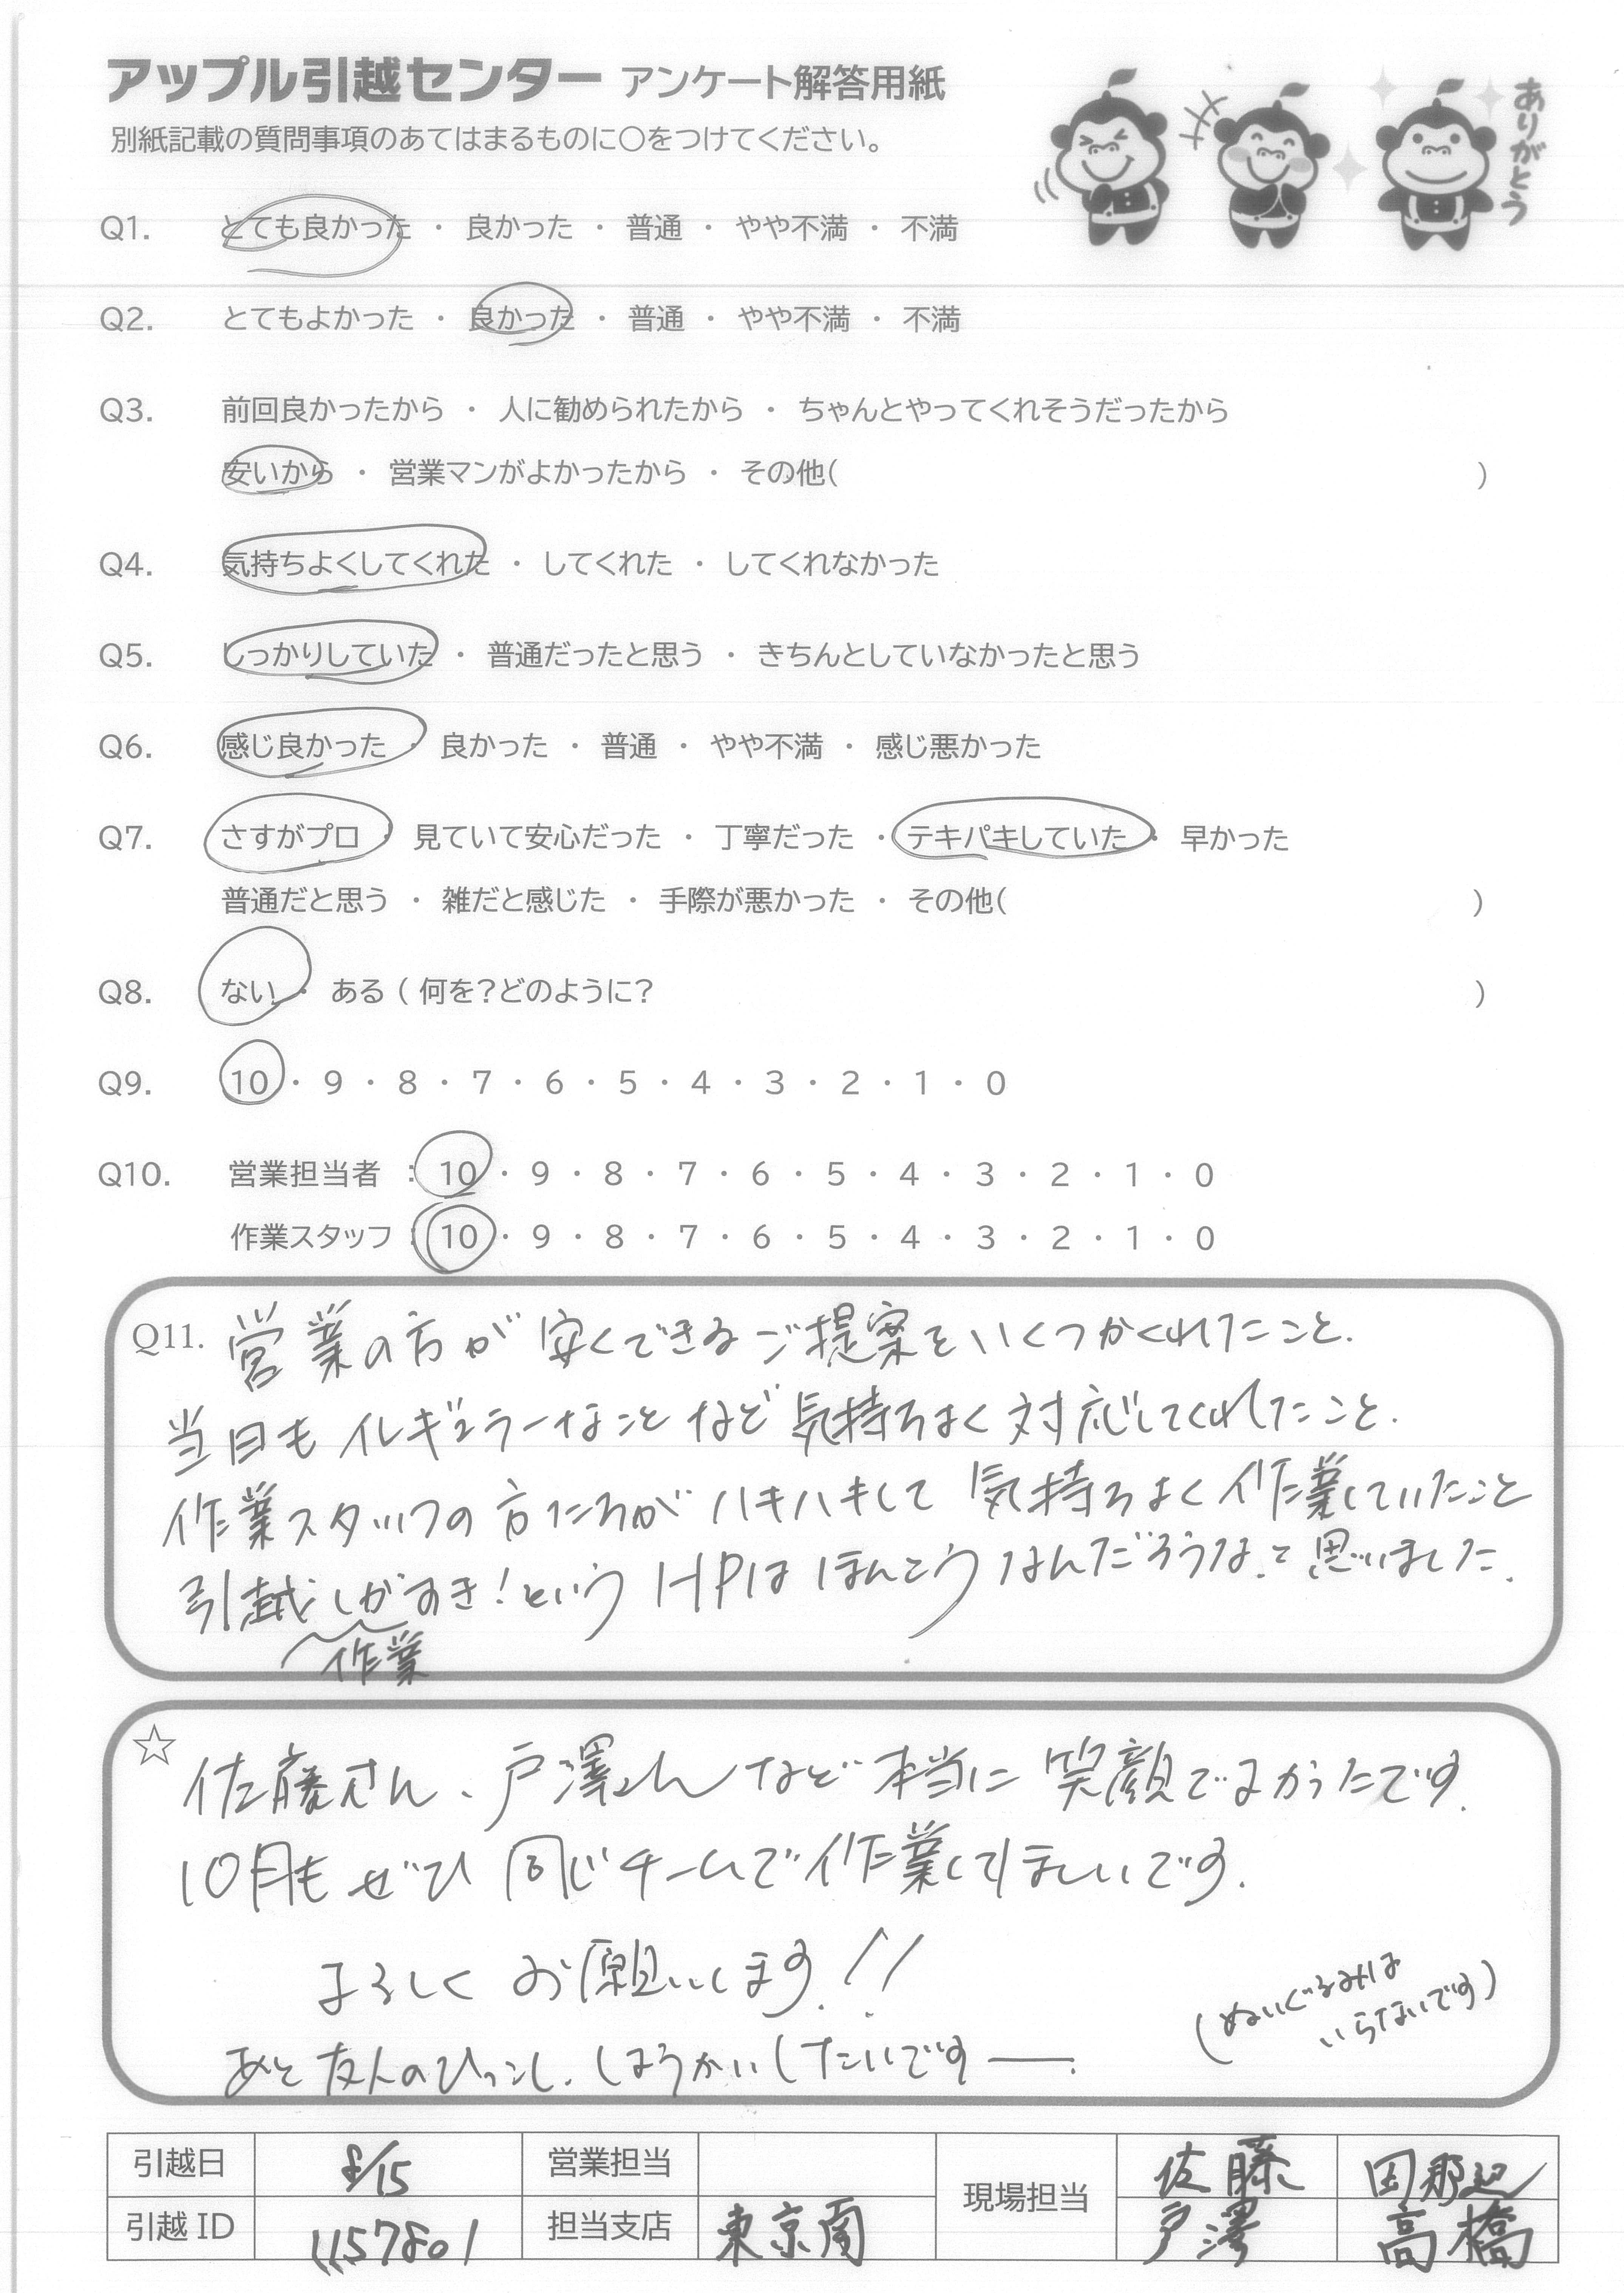 アップル引越センター アンケート解答用紙
ありがとう
別紙記載の質問事項のあてはまるものに〇をつけてください。
Q1. とても良かった ・ 良かった ・ 普通 ・ やや不満 ・ 不満
Q2. とてもよかった ・ 良かった ・ 普通 ・ やや不満 ・ 不満
Q3. 前回良かったから ・ 人に勧められたから ・ ちゃんとやってくれそうだったから
安いから ・ 営業マンがよかったから ・ その他( )
Q4. 気持ちよくしてくれた ・ してくれた ・ してくれなかった
Q5. しっかりしていた ・ 普通だったと思う ・ きちんとしていなかったと思う
Q6. 感じ良かった ・ 良かった ・ 普通 ・ やや不満 ・ 感じ悪かった
Q7. さすがプロ ・ 見ていて安心だった ・ 丁寧だった ・ テキパキしていた ・ 早かった
普通だと思う ・ 雑だと感じた ・ 手際が悪かった ・ その他( )
Q8. ない ・ ある ( 何を?どのように? )
Q9. 10 ・ 9 ・ 8 ・ 7 ・ 6 ・ 5 ・ 4 ・ 3 ・ 2 ・ 1 ・ 0
Q10. 営業担当者 : 10 ・ 9 ・ 8 ・ 7 ・ 6 ・ 5 ・ 4 ・ 3 ・ 2 ・ 1 ・ 0
作業スタッフ : 10 ・ 9 ・ 8 ・ 7 ・ 6 ・ 5 ・ 4 ・ 3 ・ 2 ・ 1 ・ 0
Q11. 営業の方が安くできるご提案をいくつかくれたこと.
当日もイレギュラーなことなど気持ちよく対応してくれたこと.
作業スタッフの方たちがハキハキして気持ちよく作業していたこと
引越しがすき!というHPはほんとうなんだろうな.と思いました.
作業
☆ 佐藤さん、戸澤さんなど本当に笑顔でよかったです.
10月もぜひ同じチームで作業してほしいです.
よろしくお願いします!!
(ぬいぐるみは
いらないです)
あと友人のひっこし.しょうかいしたいです――.
引越日 8/15 営業担当 現場担当 佐藤 田那辺
引越ID 1157801 担当支店 東京南 戸澤 高橋